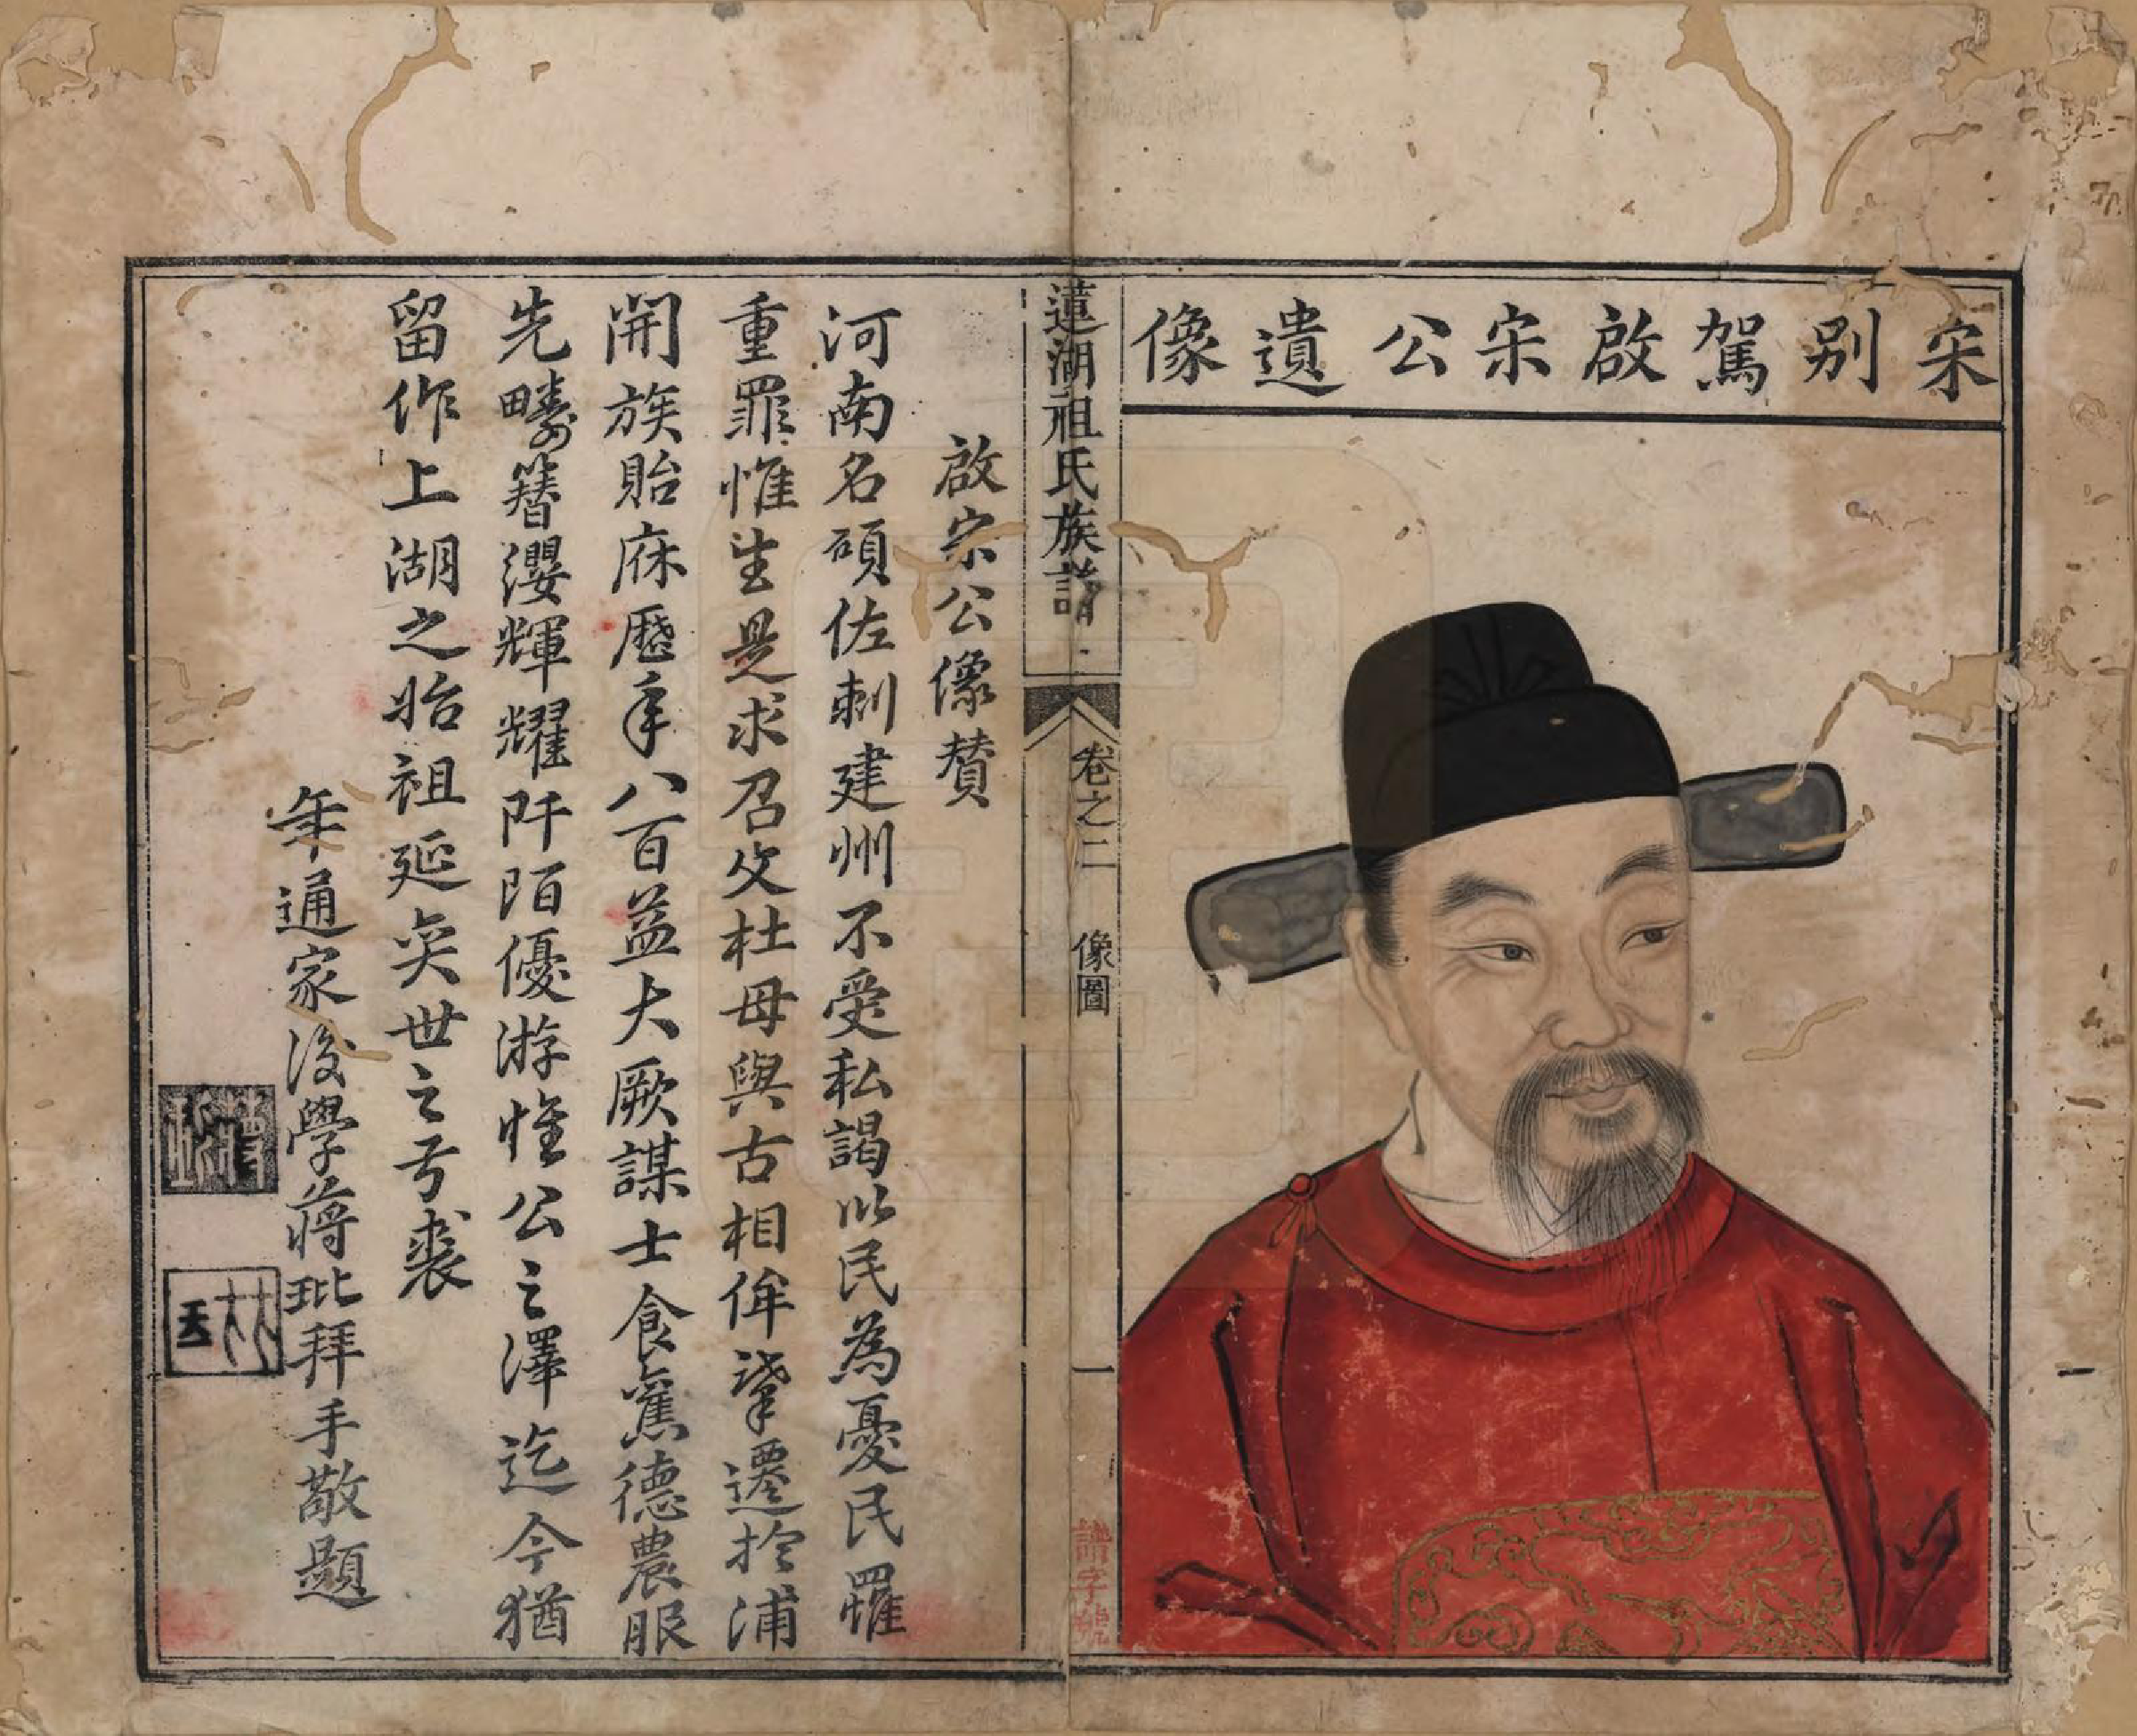 宋別駕啟宋公遺像
蓮湖祖氏族譜
卷之二 像圖
一
啟宗公像贊
河南名碩佐刺建州不受私謁以民為憂民罹
重罪惟生是求召父杜母與古相侔肇遷於浦
開族貽庥歷年八百益大厥謀士食舊德農服
先疇簪纓輝耀阡陌優游惟公之澤迄今猶
留作上湖之始祖延奕世之弓裘
年通家後學蔣玭拜手敬題